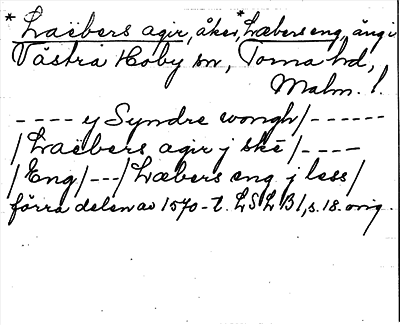 *Laëbers agir, åker, *Læbers eng, äng i
Västra Hoby sn, Torna hd,
Malm. l.
---- y Syndre wongh/------
/Laëbers agir j ské/----
/Eng/---/Læbers eng j less/
förra delen av 1570-t. LSLB1, s. 18. orig.